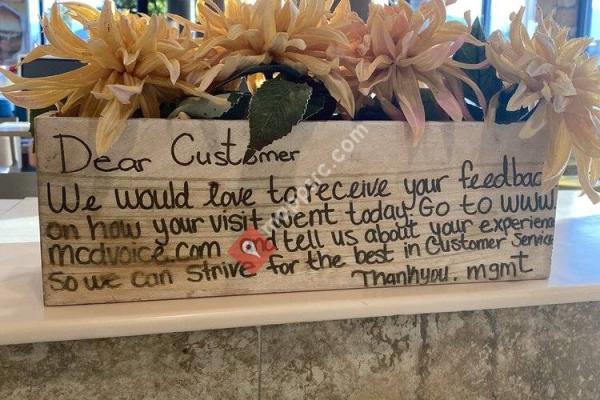 Dear Customer
We would love to receive your feedbac
on how your visit went today. Go to www.
mcdvoice.com and tell us about your experienc
so we can strive for the best in Customer Service
Thankyou. mgmt